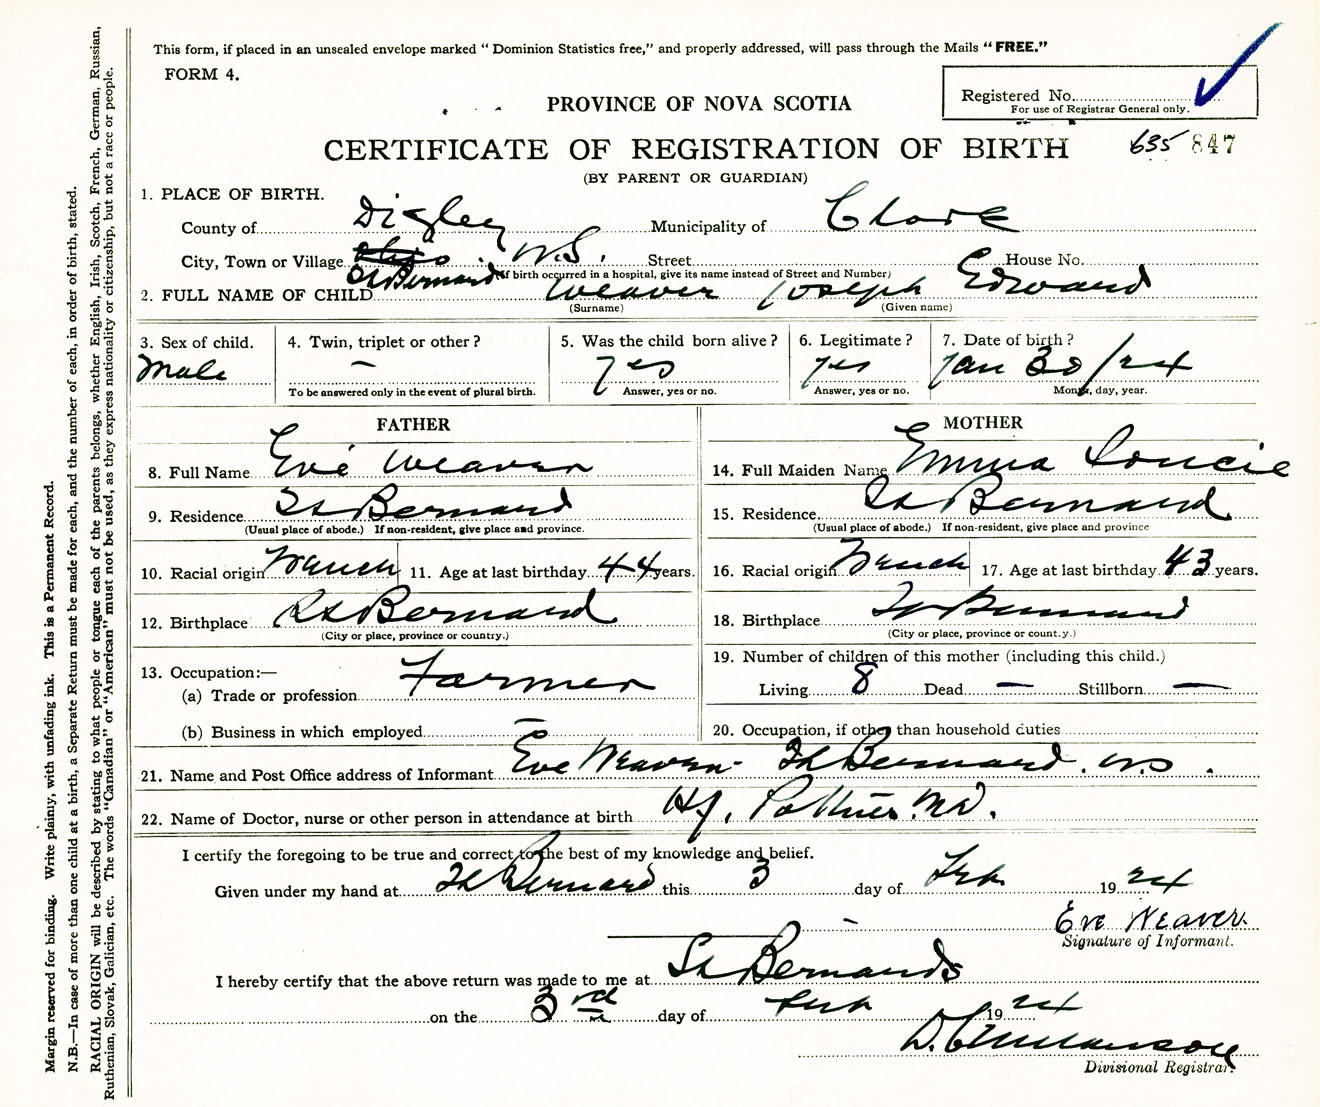 This form, if placed in an unsealed envelope marked “Dominion Statistics free,” and properly addressed, will pass through the Mails “FREE.”
FORM 4.
Registered No.
For use of Registrar General only.
PROVINCE OF NOVA SCOTIA
CERTIFICATE OF REGISTRATION OF BIRTH 635 847
(BY PARENT OR GUARDIAN)
1. PLACE OF BIRTH.
County of Digby Municipality of Clare
City, Town or Village St Bernard N.S. Street House No.
(If birth occurred in a hospital, give its name instead of Street and Number)
2. FULL NAME OF CHILD Weaver Joseph Edward
(Surname) (Given name)
3. Sex of child. 4. Twin, triplet or other? 5. Was the child born alive? 6. Legitimate? 7. Date of birth?
Male — yes yes Jan 30/24
To be answered only in the event of plural birth. Answer, yes or no. Answer, yes or no. Month, day, year.
FATHER MOTHER
8. Full Name Evé Weaver 14. Full Maiden Name Emma
9. Residence St Bernard 15. Residence St Bernard
(Usual place of abode.) If non-resident, give place and province. (Usual place of abode.) If non-resident, give place and province
10. Racial origin French 11. Age at last birthday 44 years. 16. Racial origin French 17. Age at last birthday 43 years.
12. Birthplace St Bernard 18. Birthplace St Bernard
(City or place, province or country.) (City or place, province or count.y.)
13. Occupation:— 19. Number of children of this mother (including this child.)
(a) Trade or profession Farmer Living 8 Dead — Stillborn —
(b) Business in which employed — 20. Occupation, if other than household duties
21. Name and Post Office address of Informant Eve Weaver St Bernard. N.S.
22. Name of Doctor, nurse or other person in attendance at birth M.D.
I certify the foregoing to be true and correct to the best of my knowledge and belief.
Given under my hand at St Bernard this 3 day of Feb. 1924
Eve Weaver.
Signature of Informant.
I hereby certify that the above return was made to me at St Bernards
on the 3rd day of Feb 1924
Divisional Registrar.
Margin reserved for binding. Write plainly, with unfading ink. This is a Permanent Record.
N.B.—In case of more than one child at a birth, a Separate Return must be made for each, and the number of each, in order of birth, stated.
RACIAL ORIGIN will be described by stating to what people or tongue each of the parents belongs, whether English, Irish, Scotch, French, German, Russian,
Ruthenian, Slovak, Galician, etc. The words “Canadian” or “American” must not be used, as they express nationality or citizenship, but not a race or people.